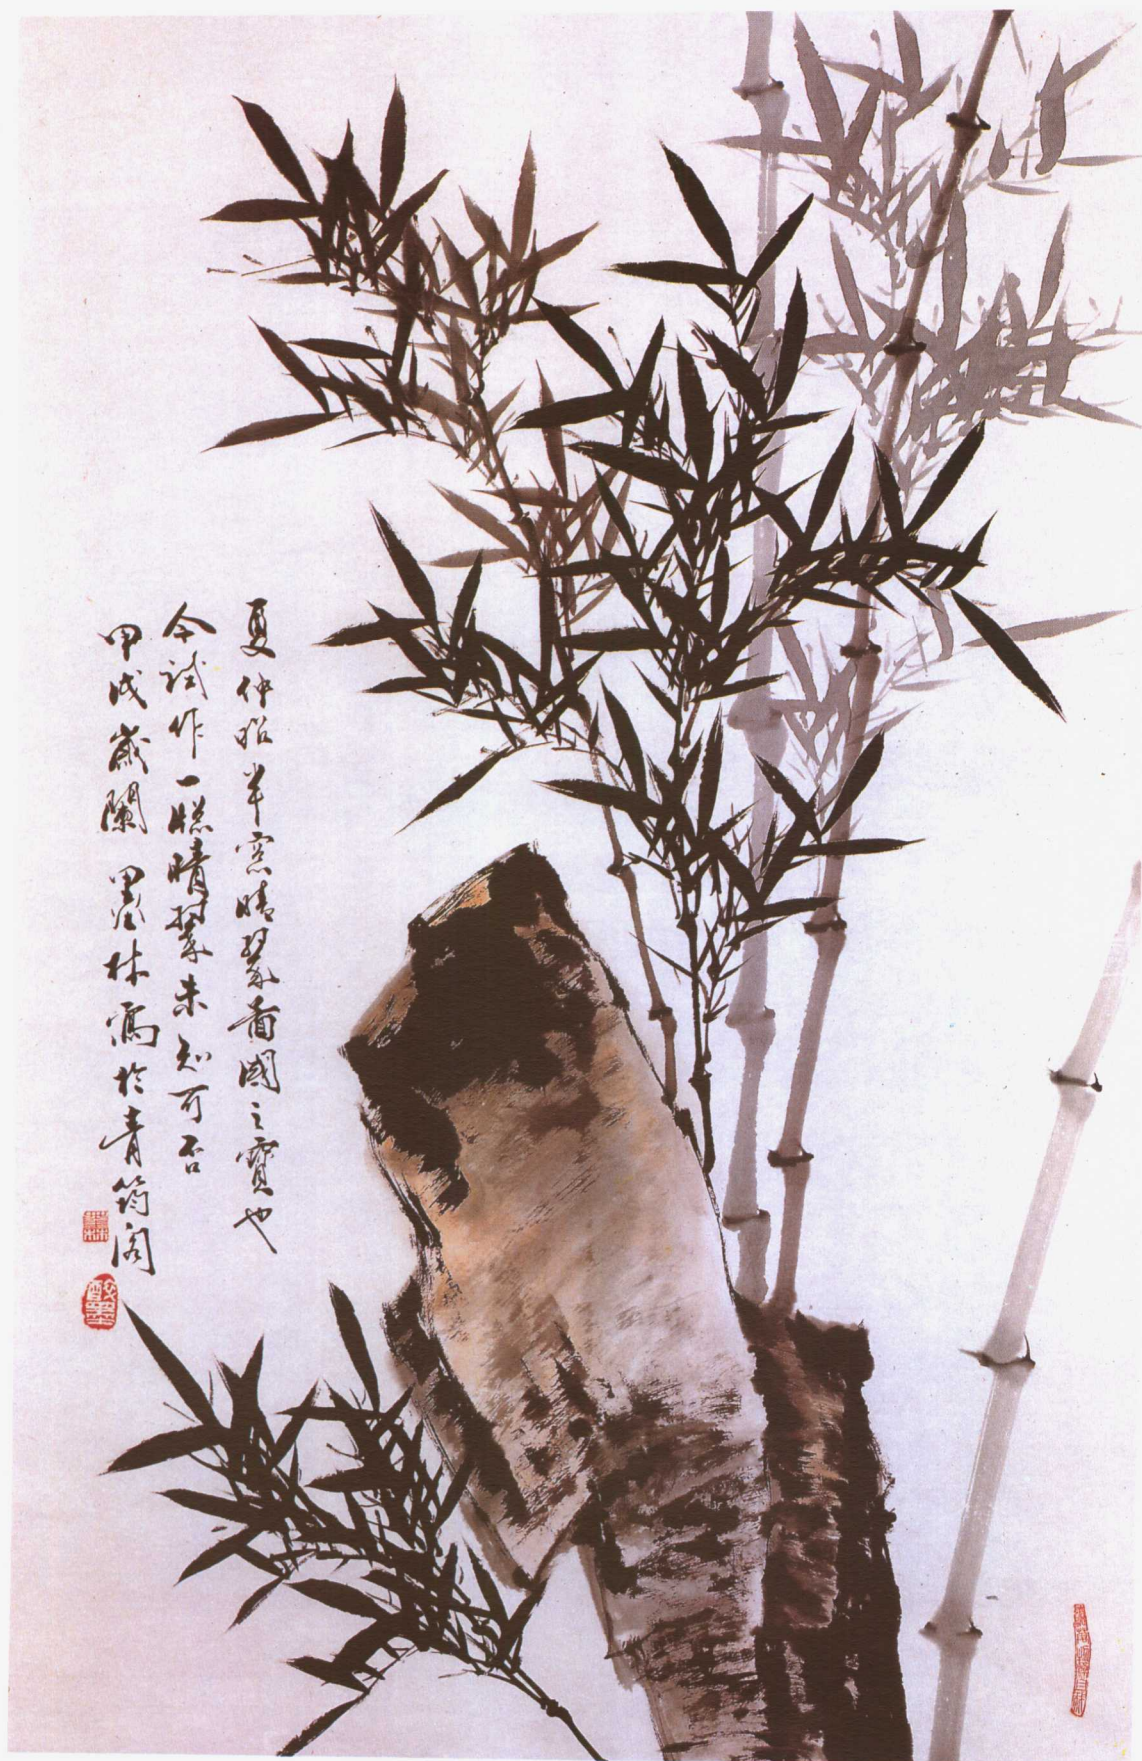 夏仲昭半窓晴翠啚國之寶也
今試作一牕晴翠未知可否
甲戌歲闌 墨林寫於青筠閣